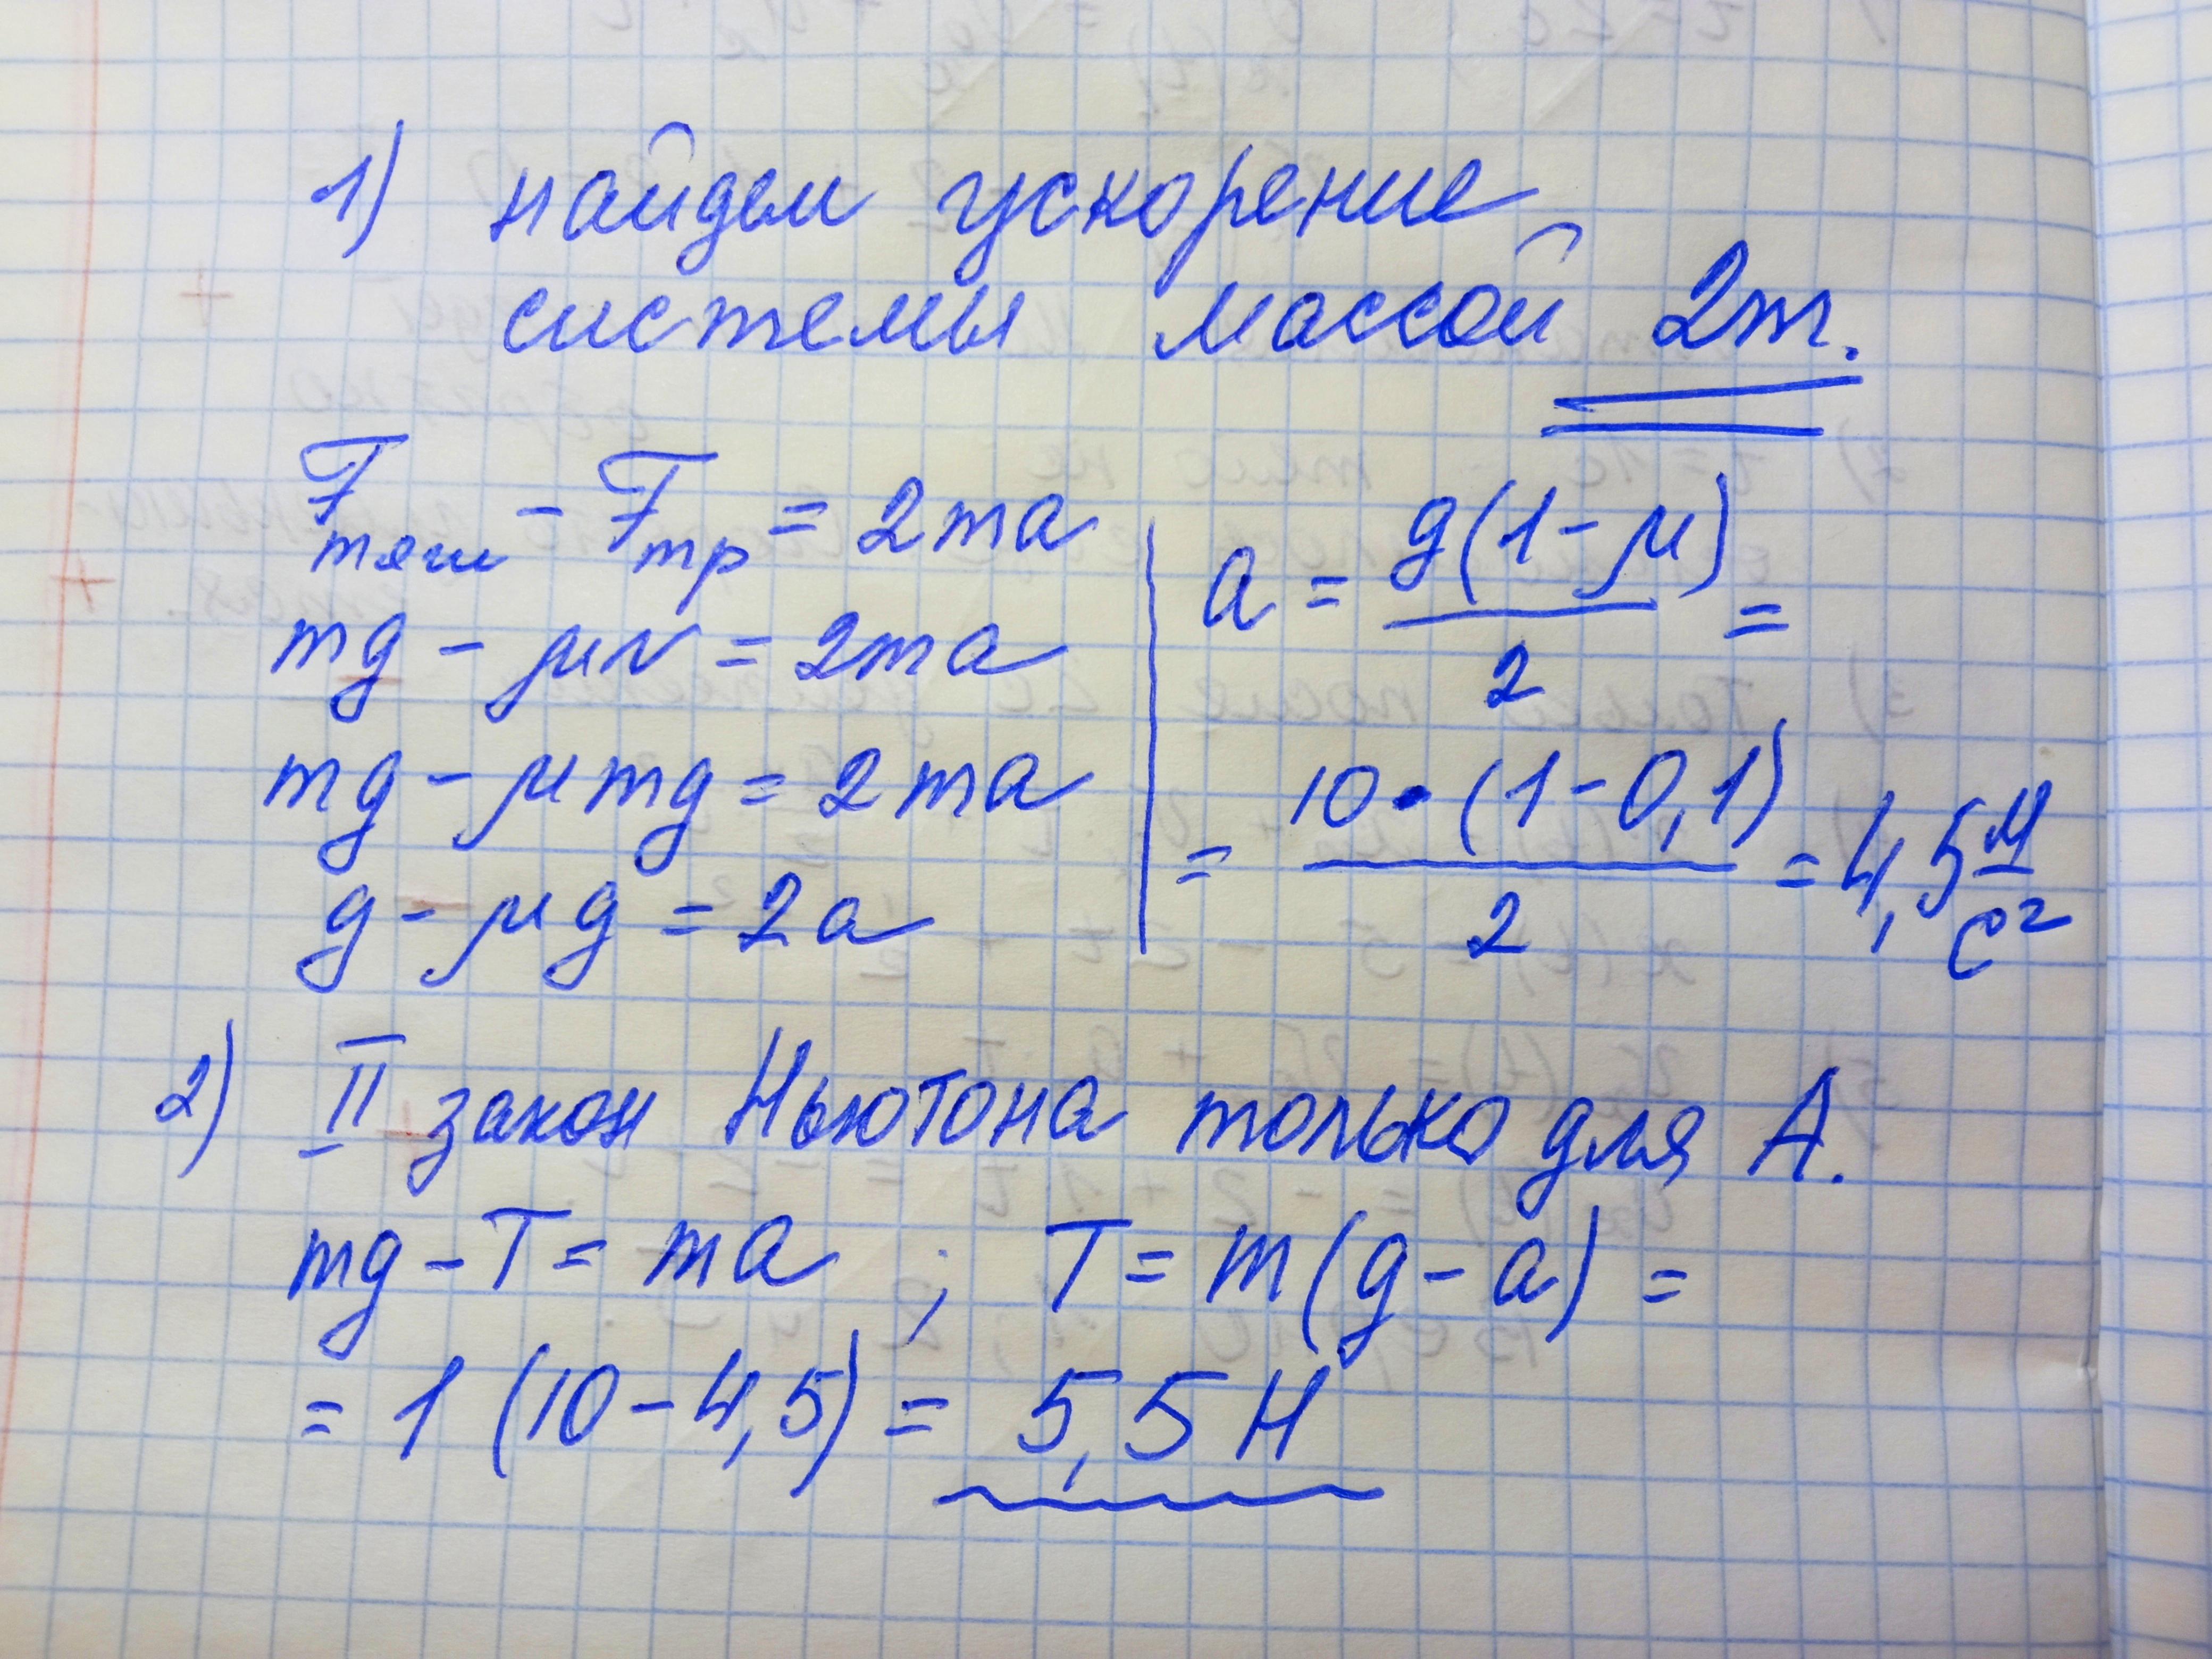 1) найдем ускорение
системы массой 2m.
Fтяж - Fтр = 2ma
mg - μN = 2ma
mg - μmg = 2ma
g - μg = 2a
a = g(1-μ)/2 =
= 10·(1-0,1)/2 = 4,5 м/с²
2) II закон Ньютона только для A.
mg - T = ma ; T = m(g - a) =
= 1 (10 - 4,5) = 5,5 Н